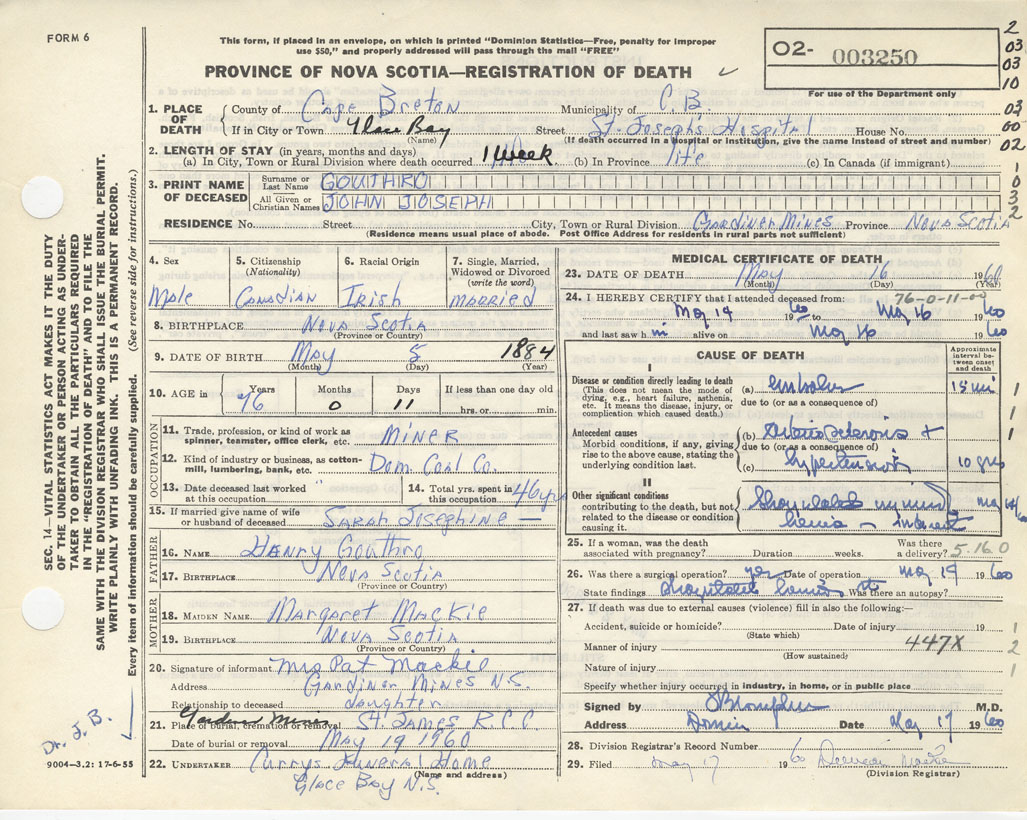 FORM 6
This form, if placed in an envelope, on which is printed "Dominion Statistics—Free, penalty for improper
use $50," and properly addressed will pass through the mail "FREE"
PROVINCE OF NOVA SCOTIA—REGISTRATION OF DEATH ✓
O2- 003250
For use of the Department only
2
03
03
10
03
00
02
1
0
3
2
1. PLACE OF DEATH
County of Cape Breton Municipality of C.B.
If in City or Town Glace Bay Street St. Joseph's Hospital House No.
(Name) (If death occurred in a hospital or institution, give the name instead of street and number)
2. LENGTH OF STAY (in years, months and days)
(a) In City, Town or Rural Division where death occurred 1 Week (b) In Province life (c) In Canada (if immigrant)
3. PRINT NAME OF DECEASED
Surname or Last Name GOUTHRO
All Given or Christian Names JOHN JOSEPH
RESIDENCE No. Street City, Town or Rural Division Gardiner Mines Province Nova Scotia
(Residence means usual place of abode. Post Office Address for residents in rural parts not sufficient)
4. Sex Male
5. Citizenship (Nationality) Canadian
6. Racial Origin Irish
7. Single, Married, Widowed or Divorced (write the word) MARRIED
8. BIRTHPLACE Nova Scotia
(Province or Country)
9. DATE OF BIRTH May 5 1884
(Month) (Day) (Year)
10. AGE in Years 76 Months 0 Days 11 If less than one day old hrs. or min.
OCCUPATION
11. Trade, profession, or kind of work as spinner, teamster, office clerk, etc. MINER
12. Kind of industry or business, as cotton-mill, lumbering, bank, etc. Dom. Coal Co.
13. Date deceased last worked at this occupation
14. Total yrs. spent in this occupation 46 yrs
15. If married give name of wife or husband of deceased Sarah Josephine —
FATHER
16. NAME Henry Gouthro
17. BIRTHPLACE Nova Scotia
(Province or Country)
MOTHER
18. MAIDEN NAME Margaret MacKie
19. BIRTHPLACE Nova Scotia
(Province or Country)
20. Signature of informant Mrs Pat Mackie
Address Gardiner Mines N.S.
Relationship to deceased daughter
21. Place of burial, cremation or removal Gardiner Mines St. James R.C.C.
Date of burial or removal May 19 1960
22. UNDERTAKER Currys Funeral Home
(Name and address)
Glace Bay N.S.
MEDICAL CERTIFICATE OF DEATH
23. DATE OF DEATH May 16 1960
(Month) (Day) (Year)
76-0-11-00
24. I HEREBY CERTIFY that I attended deceased from:
May 14 1960 to May 16 1960
and last saw him alive on May 16 1960
CAUSE OF DEATH
Approximate interval between onset and death
I
Disease or condition directly leading to death
(This does not mean the mode of dying, e.g., heart failure, asthenia, etc. It means the disease, injury, or complication which caused death.)
(a) embolus 15 mi 1
due to (or as a consequence of) 1
Antecedent causes
Morbid conditions, if any, giving rise to the above cause, stating the underlying condition last.
(b) Arteriosclerosis + 1
due to (or as a consequence of)
(c) hypertension 10 yrs
II
Other significant conditions
contributing to the death, but not related to the disease or condition causing it.
Strangulated
hernia
25. If a woman, was the death associated with pregnancy? Duration weeks. Was there a delivery? 5.16 0
26. Was there a surgical operation? yes Date of operation May 14 1960
State findings strangulated hernia Was there an autopsy?
27. If death was due to external causes (violence) fill in also the following:—
Accident, suicide or homicide? Date of injury 19 1
(State which)
Manner of injury 447X 2
(How sustained)
Nature of injury 1
Specify whether injury occurred in industry, in home, or in public place
Signed by M.D.
Address Domin Date May 17 1960
28. Division Registrar's Record Number
29. Filed May 17 1960
(Division Registrar)
SEC. 14—VITAL STATISTICS ACT MAKES IT THE DUTY
OF THE UNDERTAKER OR PERSON ACTING AS UNDER-
TAKER TO OBTAIN ALL THE PARTICULARS REQUIRED
IN THE "REGISTRATION OF DEATH" AND TO FILE THE
SAME WITH THE DIVISION REGISTRAR WHO SHALL ISSUE THE BURIAL PERMIT.
WRITE PLAINLY WITH UNFADING INK. THIS IS A PERMANENT RECORD.
Every item of information should be carefully supplied. (See reverse side for instructions.)
Dr. J. B.
9004—3.2: 17-6-55